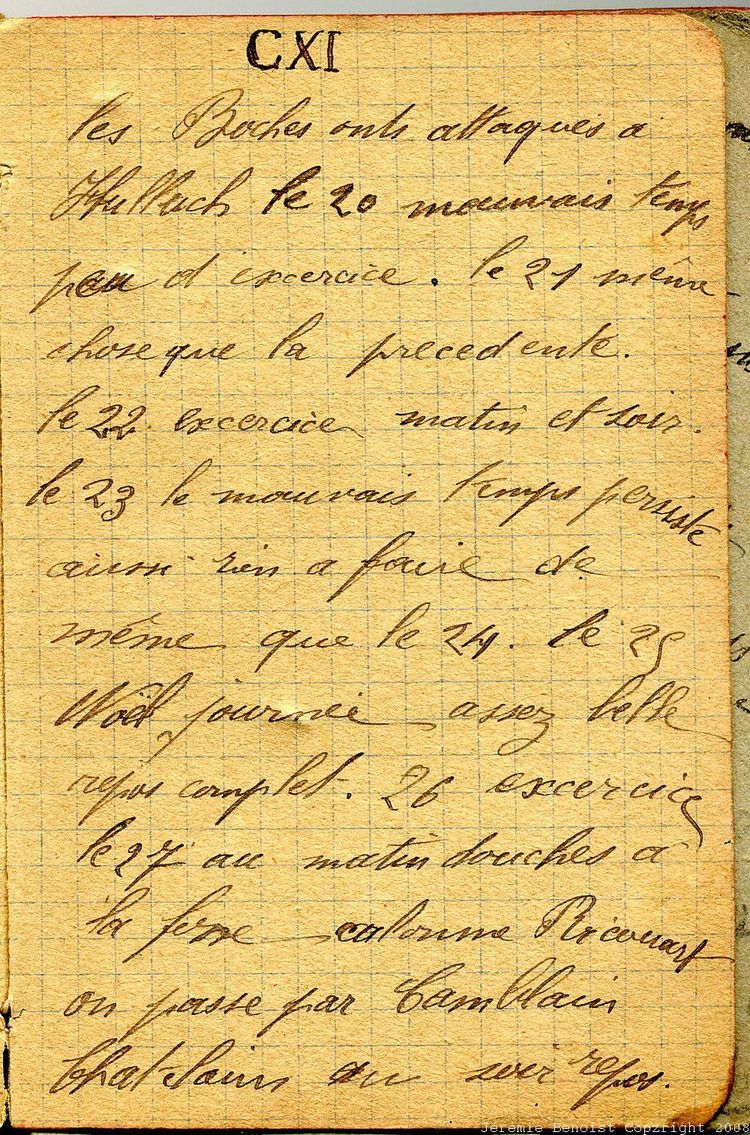 CXI
les Boches onts attaqués a
Hulluch le 20 mauvais temps
peu d'excercice. le 21 même
chose que la precedente.
le 22 excercice matin et soir.
le 23 le mauvais temps persiste
aussi rien a faire de
même que le 24. le 25
Noël journée assez belle
repos complet. 26 excercice
le 27 au matin douches a
la fosse calonne Ricouart
on passe par Camblain
Chatelain au soir repos.
Jeremie Benoist Copzright 2008